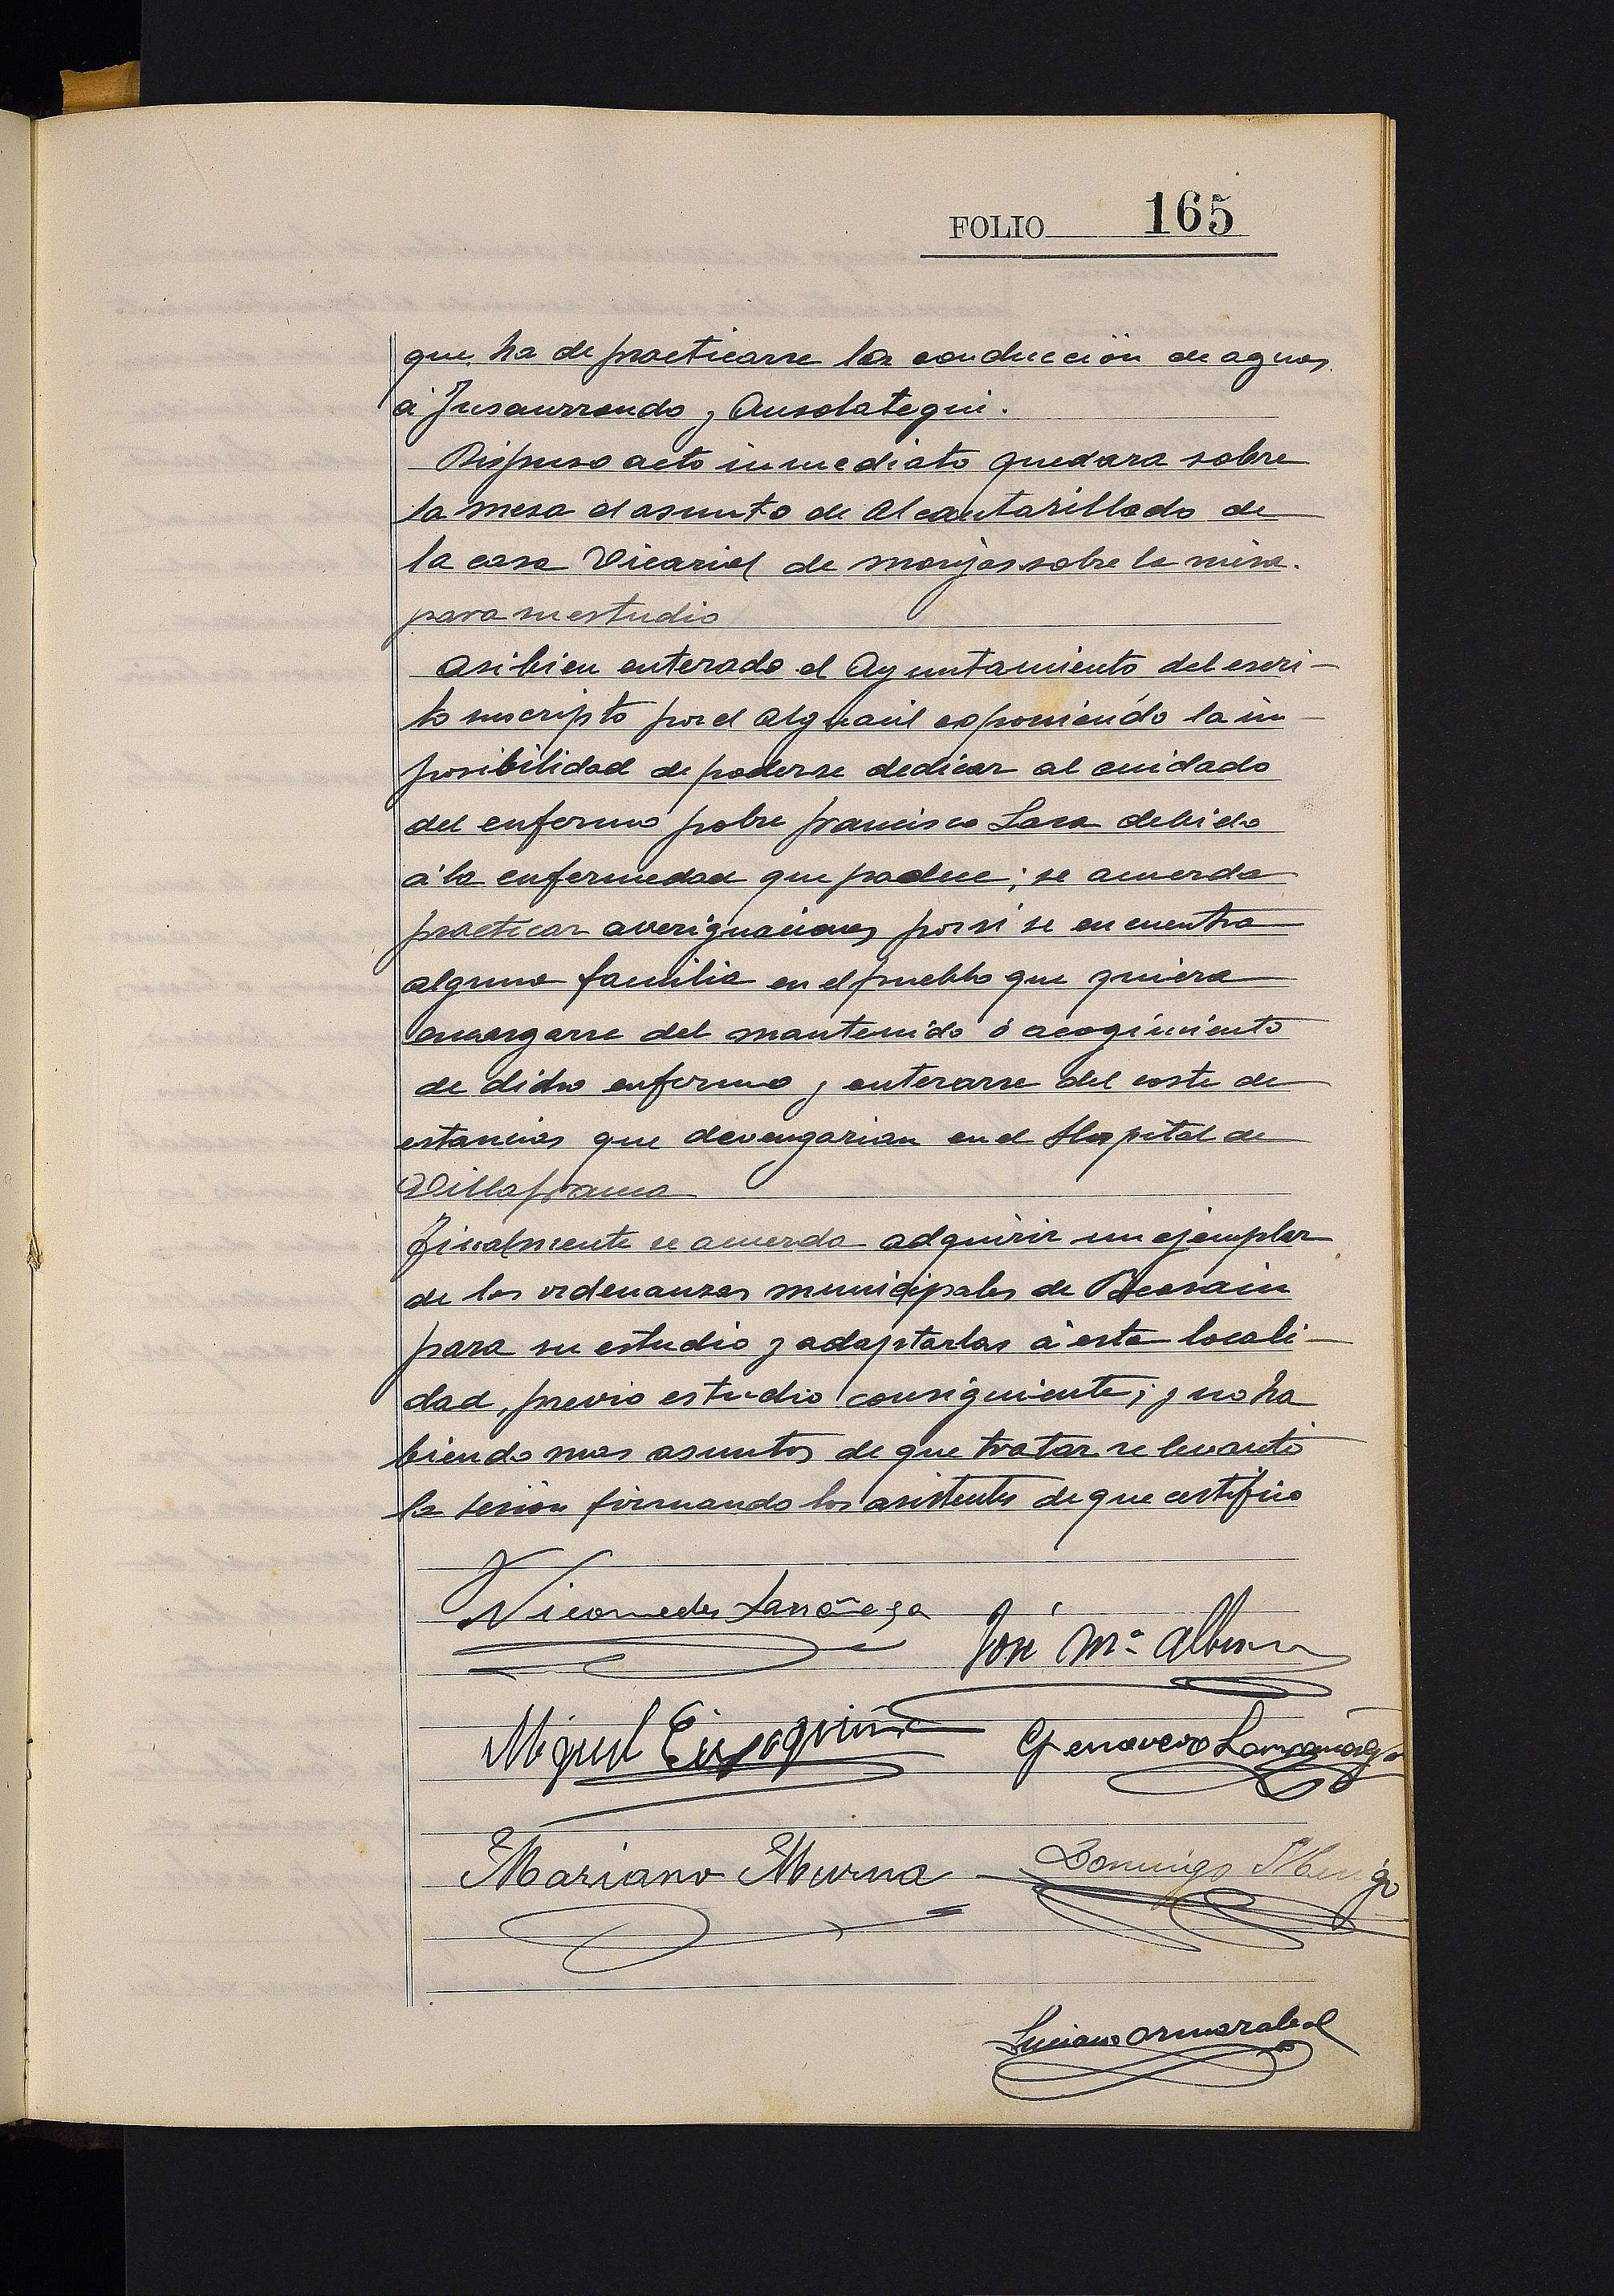 FOLIO 165
que ha de practicarse la conducción de aguas
á Jusaurrondo y Ausolategui.
Dispuso acto inmediato quedara sobre
la mesa el asunto de Alcantarillado de
la casa Vicarial de monjas sobre la mesa.
para su estudio
Asi bien enterado el Ayuntamiento del escri-
to suscripto por el Alguacil exponiendo la im-
posibilidad de poderse dedicar al cuidado
del enfermo pobre francisco Lasa debido
á la enfermedad que padece; se acuerda
practicar averiguaciones por si se encuentra
alguna familia en el pueblo que quiera
encargarse del mantenido ó acogimiento
de dicho enfermo y enterarse del coste de
estancias que devengarian en el Hospital de
Villafranca
Finalmente se acuerda adquirir un ejemplar
de las ordenanzas municipales de Beasain
para su estudio y adaptarlas á esta locali-
dad, previo estudio consiguiente; y no ha
biendo mas asuntos de que tratar se levantó
la sesion firmando los asistentes de que certifico
Nicomedes Larrañaga
José Mª
Miguel
Genavero Larrañaga
Mariano Murua
Domingo
Luciano